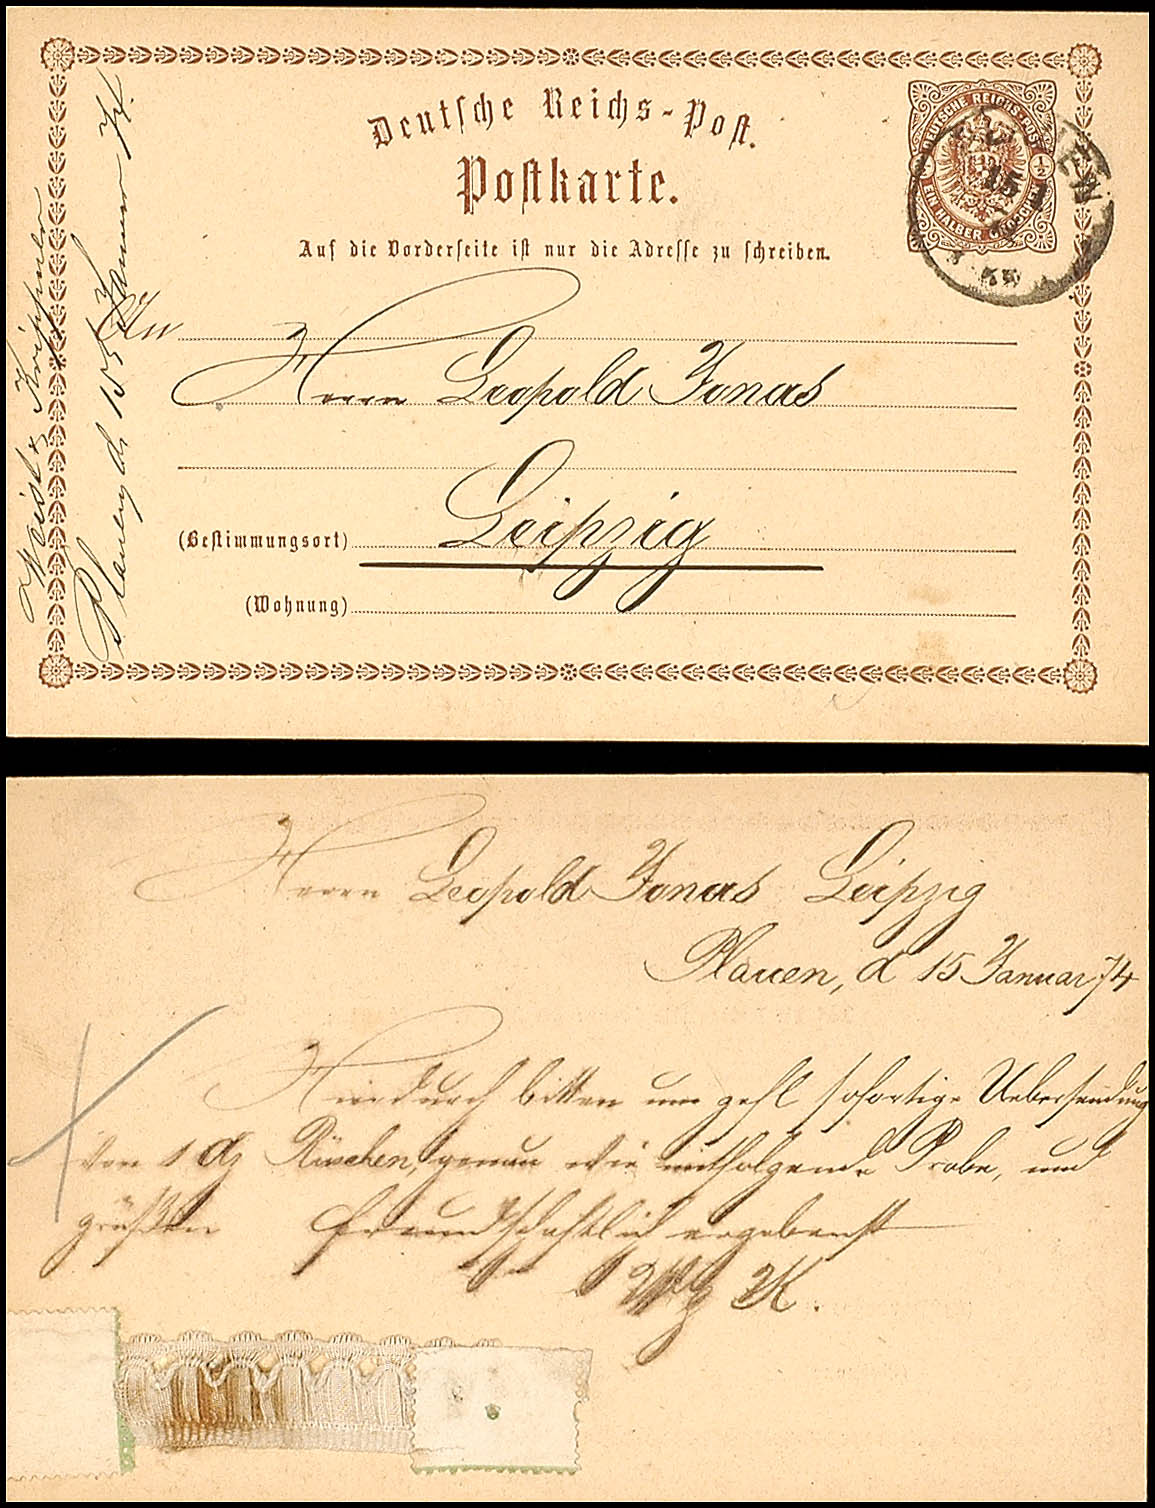 Deutsche Reichs-Post.
Postkarte.
Auf die Vorderseite ist nur die Adresse zu schreiben.
DEUTSCHE REICHS-POST
½
EIN HALBER GROSCHEN
15
An
Herrn Leopold Jonas
Leipzig
(Bestimmungsort)
(Wohnung)
Plauen, d. 15 Januar 74.
Herrn Leopold Jonas Leipzig
Plauen, d 15 Januar 74
Hierdurch bitten um gefl sofortige Uebersendung
von 1 Rüschen, genau wie mitfolgende Probe, und
grüßen freundschaftlich ergebenst